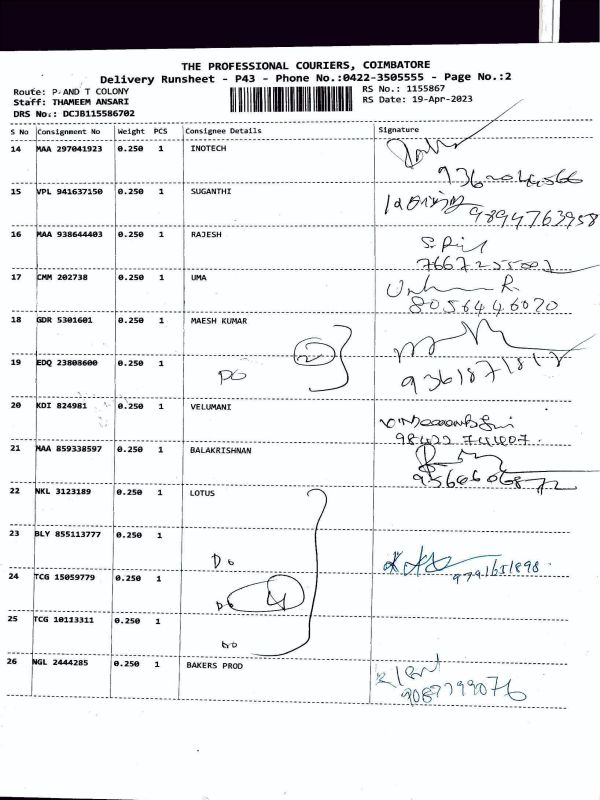 THE PROFESSIONAL COURIERS, COIMBATORE
Delivery Runsheet - P43 - Phone No.:0422-3505555 - Page No.:2
Route: P AND T COLONY
Staff: THAMEEM ANSARI
DRS No.: DCJB115586702
RS No.: 1155867
RS Date: 19-Apr-2023
S No Consignment No Weight PCS Consignee Details Signature
14 MAA 297041923 0.250 1 INOTECH
15 VPL 941637150 0.250 1 SUGANTHI
9894763958
16 MAA 938644403 0.250 1 RAJESH
17 CMM 202738 0.250 1 UMA
8056446070
18 GDR 5301601 0.250 1 MAESH KUMAR
2
19 EDQ 23808600 0.250 1
DO
20 KDI 824981 0.250 1 VELUMANI
21 MAA 859338597 0.250 1 BALAKRISHNAN
22 NKL 3123189 0.250 1 LOTUS
23 BLY 855113777 0.250 1
Do
9791651898
24 TCG 15059779 0.250 1
Do 4
25 TCG 10113311 0.250 1
Do
26 NGL 2444285 0.250 1 BAKERS PROD